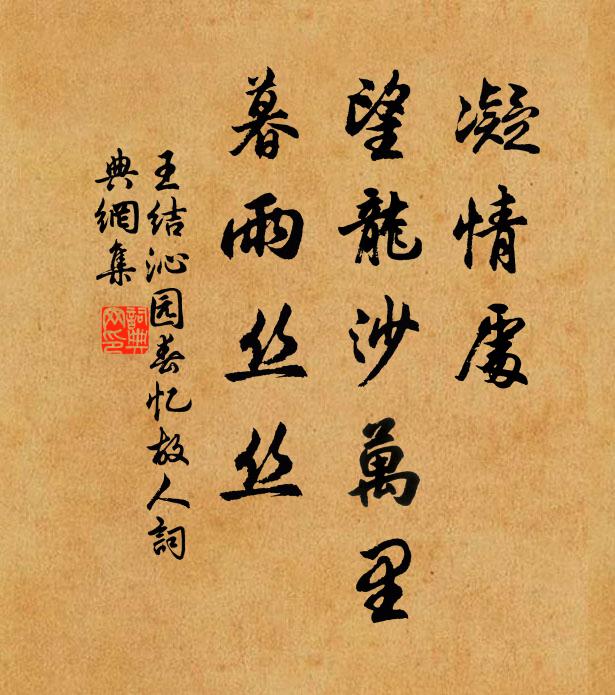 凝情處
望龍沙萬里
暮雨丝丝
王结沁园春忆故人詞
典網集
詞典
网印